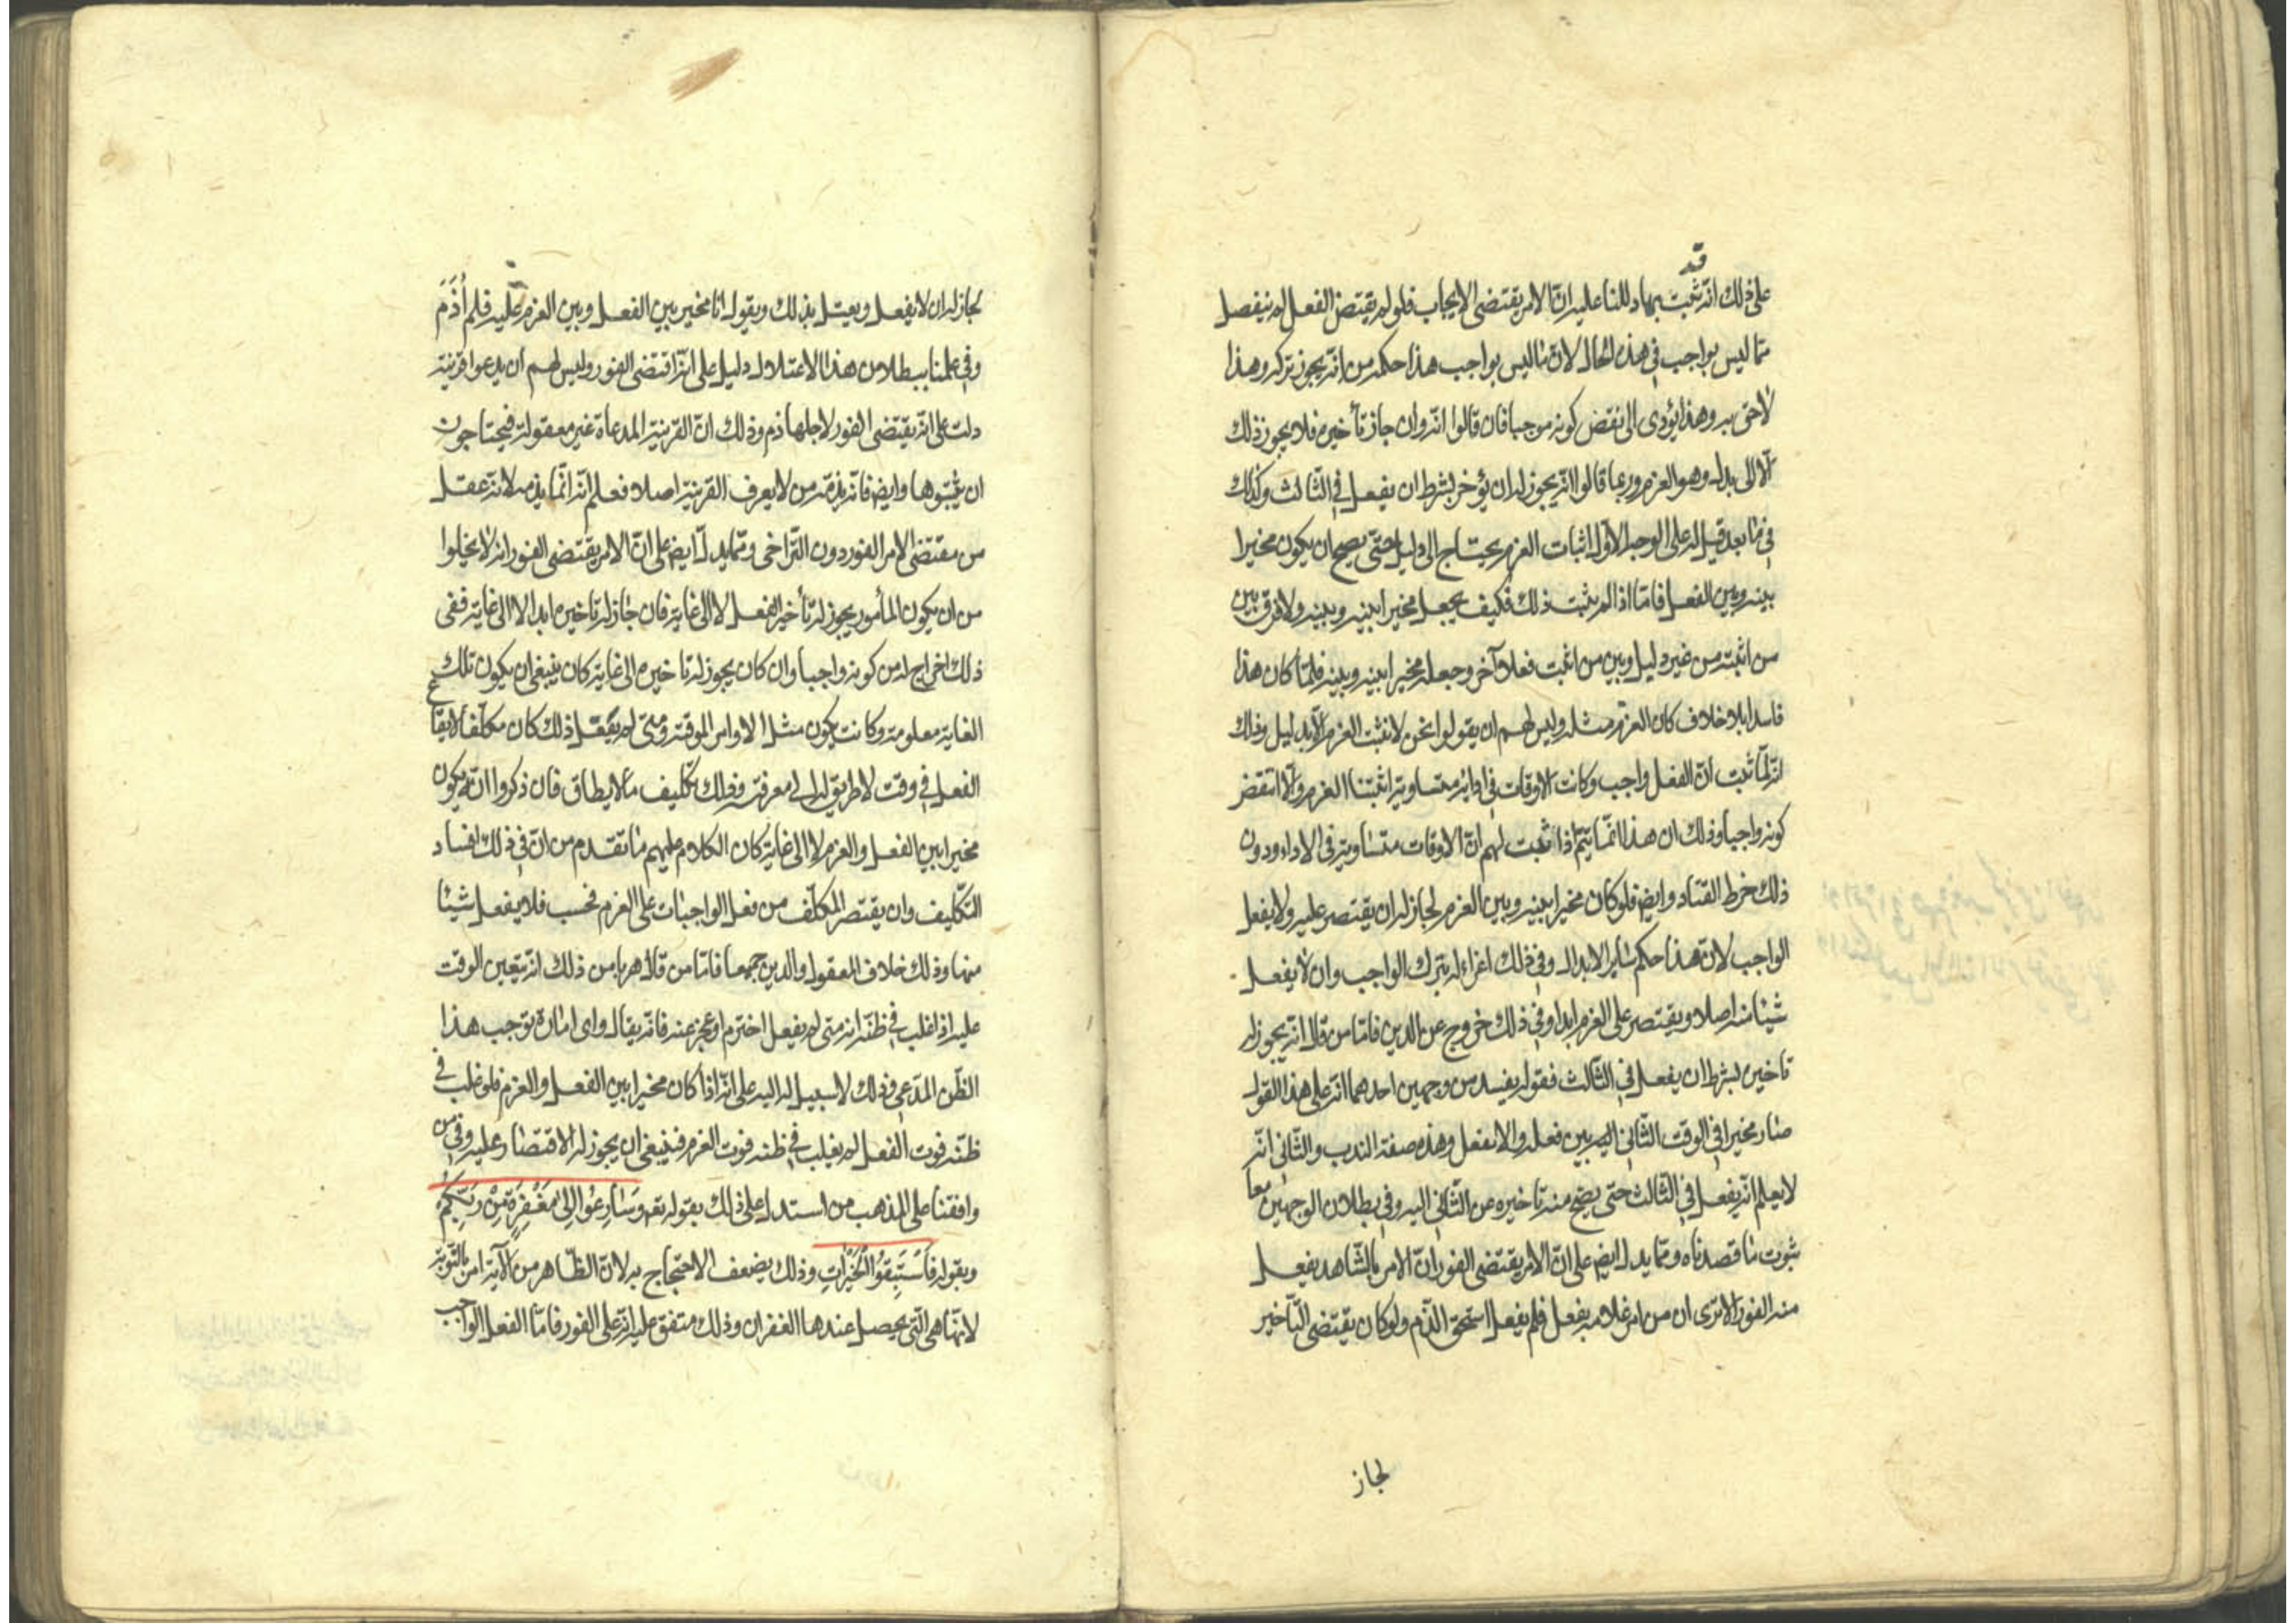 قد
على ذلك انه ثبت بما دللنا عليه انّ الامر يقتضى الايجاب فلو لم يقتض الفعل لم ينفصل
مما ليس بواجب في هذه الحال لان ما ليس بواجب هذا حكمه من انه يجوز تركه وهذا
لاحق به وهذا يؤدى الى نقض كونه موجبا فان قالوا انه وان جاز تأخيره فلا يجوز ذلك
الّا الى بدل وهو العزم وربما قالوا انه يجوز له ان يؤخر بشرط ان يفعل في الثالث وكذلك
في ما بعد قيل له على الوجه الاول اثبات العزم يحتاج الى دليل حتى يصح ان يكون مخيرا
بينه وبين الفعل فامّا اذا لم يثبت ذلك فكيف يجعل مخيرا بينه وبينه ولا فرق بين
من اثبته من غير دليل وبين من اثبت فعلا آخر وجعله مخيرا بينه وبينه فلمّا كان هذا
فاسدا بلا خلاف كان العزم مثله وليس لهم ان يقولوا نحن لا نثبت العزم الّا بدليل وذلك
انه لمّا ثبت انّ الفعل واجب وكانت الاوقات في ادائه متساوية اثبتنا العزم والّا انتقض
كونه واجبا وذلك ان هذا انّما يتمّ اذا ثبت لهم انّ الاوقات متساوية في الاداء ودون
ذلك خرط القتاد وايض فلو كان مخيرا بينه وبين العزم لجاز له ان يقتصر عليه ولا يفعل
الواجب لانّ هذا حكم سائر الابدال وفي ذلك اغراء له بترك الواجب وان لا يفعل
شيئا منه اصلا ويقتصر على العزم ابدا وفي ذلك خروج عن الدين فامّا من قال انه يجوز له
تاخيره بشرط ان يفعل في الثالث فقوله يفسد من وجهين احدهما انه على هذا القول
صار مخيرا في الوقت الثاني اليه بين فعله والا يفعل وهذه صفة الندب والثاني انه
لا يعلم انه يفعل في الثالث حتى يصح منه تاخيره عن الثاني اليه وفي بطلان الوجهين معا
ثبوت ما قصدناه ومما يدل ايض على انّ الامر يقتضى الفور انّ الامر بالشاهد يفعل
منه الفور الا ترى ان من امر غلامه بفعل فلم يفعل استحق الذّم ولو كان يقتضى التأخير
لجاز
لجاز له ان لا يفعل ويعتل بذلك ويقول انا مخير بين الفعل وبين العزم عليه فلم أُذَمَّ
وفي علمنا ببطلان هذا الاعتلال دليل على انه اقتضى الفور وليس لهم ان يدعوا قرينة
دلت على انه يقتضى الفور لاجلها ذم وذلك انّ القرينة المدعاة غير معقولة فيحتاجون
ان يثبتوها وايض فانه يذمه من لا يعرف القرينة اصلا فعلم انه انّما يذمه لانه عقل
من مقتضى الامر الفور دون التراخى وممّا يدل ايض على انّ الامر يقتضى الفور انه لا يخلوا
من ان يكون المأمور يجوز له تأخير الفعل لا الى غاية فان جاز له تاخيره ابدا لا الى غاية ففى
ذلك اخراج له من كونه واجبا وان كان يجوز له تاخيره الى غاية كان ينبغى ان يكون تلك
الغاية معلومة وكانت يكون مثل الاوامر الموقتة ومتى لم يفعل ذلك كان مكلّفا لايقاع
الفعل في وقت لا طريق له الى معرفته وذلك تكليف ما لا يطاق فان ذكروا انّه يكون
مخيرا بين الفعل والعزم لا الى غاية كان الكلام عليهم ما تقدم من انّ في ذلك افساد
التكليف وان يقتصر المكلّف من فعل الواجبات على العزم فحسب فلا يفعل شيئا
منها وذلك خلاف المعقول والدين جميعا فامّا من قال هربا من ذلك انه يتعين الوقت
عليه اذا غلب في ظنّه انه متى لم يفعل اخترم او عجز عنه فانه يقال واى امارة توجب هذا
الظّن المدّعى وذلك لا سبيل له اليه على انّه اذا كان مخيرا بين الفعل والعزم فلو غلب في
ظنّه فوت الفعل لم يغلب في ظنه فوت العزم فينبغى ان يجوز له الاقتصار عليه وفي من
وافقنا على المذهب من استدل على ذلك بقوله تع وَسَارِعُوا إِلى مَغْفِرَةٍ مِنْ رَبِّكُمْ
وبقوله فَاسْتَبِقُوا الْخَيْرَاتِ وذلك يضعف الاحتجاج به لانّ الظاهر من الآية امر بالتّوبة
لانّها هى التى يحصل عندها الغفران وذلك متفق عليه انّه على الفور فامّا الفعل الواجب